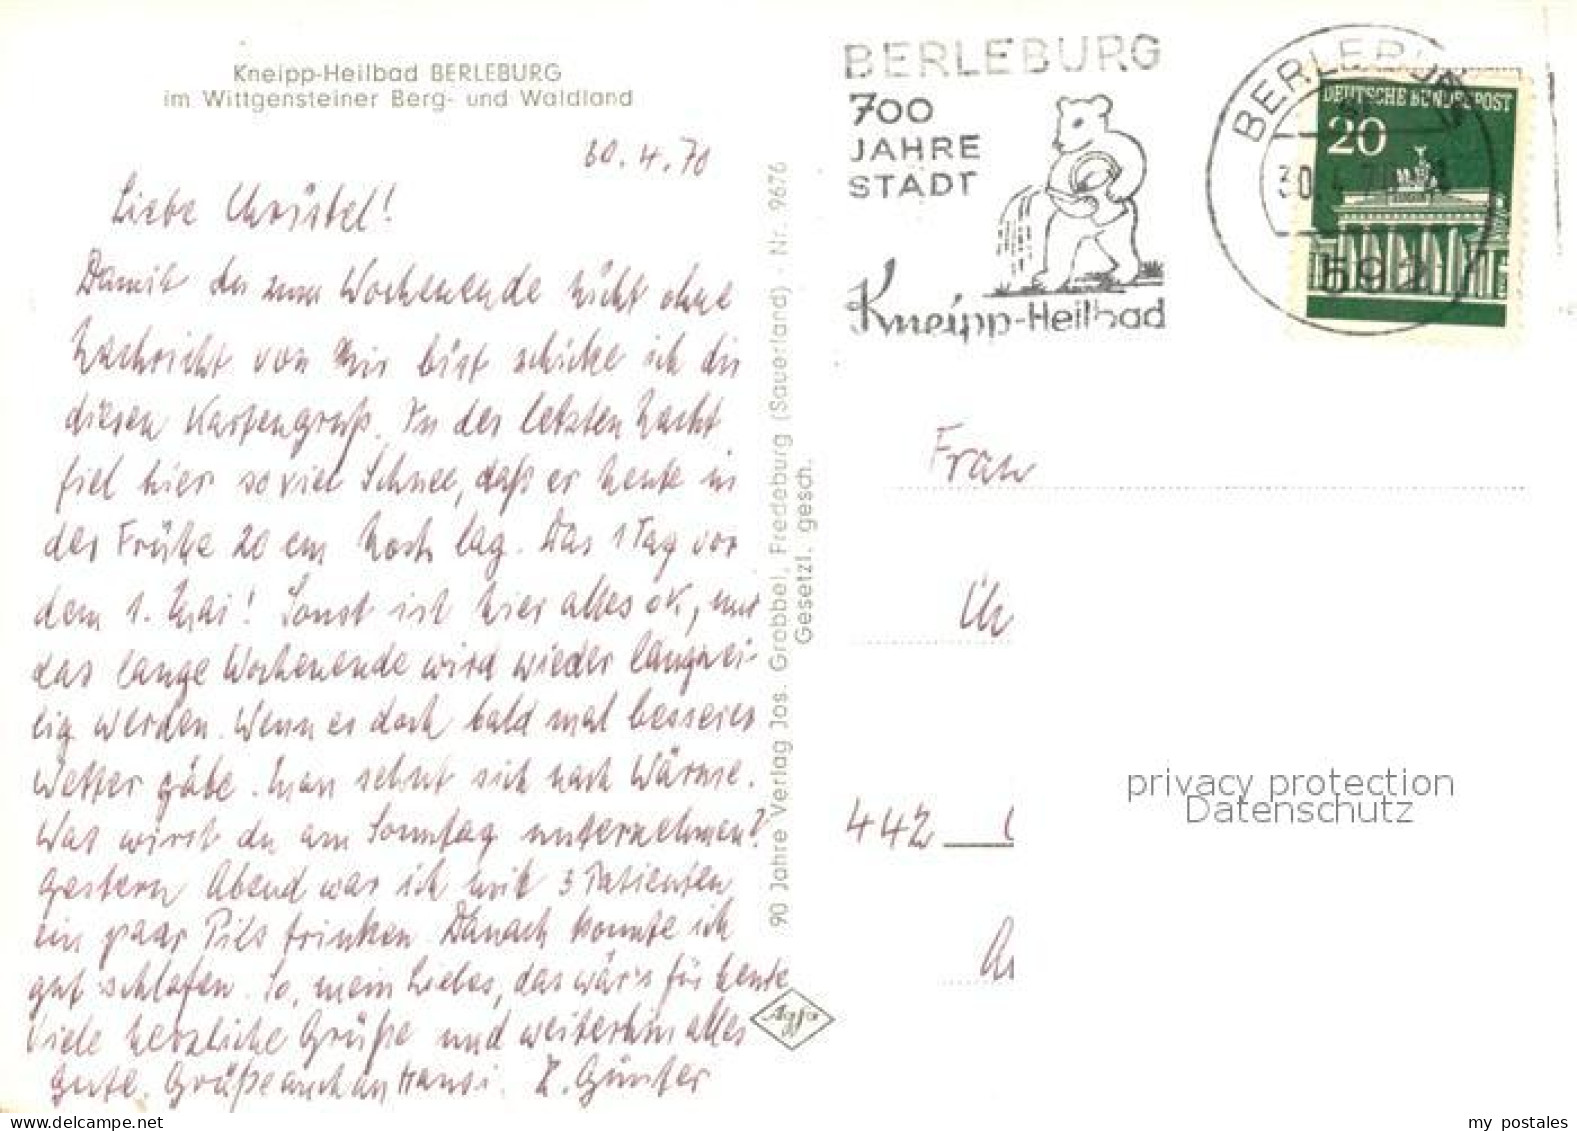 Kneipp-Heilbad BERLEBURG
im Wittgensteiner Berg- und Waldland
30.4.70
Liebe Christel!
Damit du zum Wochenende nicht ohne
Nachricht von mir bist schicke ich dir
diesen Kartengruß. In der letzten Nacht
fiel hier so viel Schnee, daß er heute in
der Frühe 20 cm hoch lag. Das 1 Tag vor
dem 1. Mai! Sonst ist hier alles ok, nur
das lange Wochenende wird wieder langwei-
lig werden. Wenn es doch bald mal besseres
Wetter gäbe. Man sehnt sich nach Wärme.
Was wirst du am Sonntag unternehmen?
Gestern Abend war ich mit 3 Patienten
ein paar Pils trinken. Danach konnte ich
gut schlafen. So, mein Liebes, das wär's für heute
Viele herzliche Grüße und weiterhin alles
Gute. Grüße auch an Hansi. Günter
90 Jahre Verlag Jos. Grobbel, Fredeburg (Sauerland) - Nr. 9676
Gesetzl. gesch.
Agfa
BERLEBURG
700
JAHRE
STADT
Kneipp-Heilbad
BERLEBURG
30.4.70
592
DEUTSCHE BUNDESPOST
20
Frau
442
privacy protection
Datenschutz
my postales